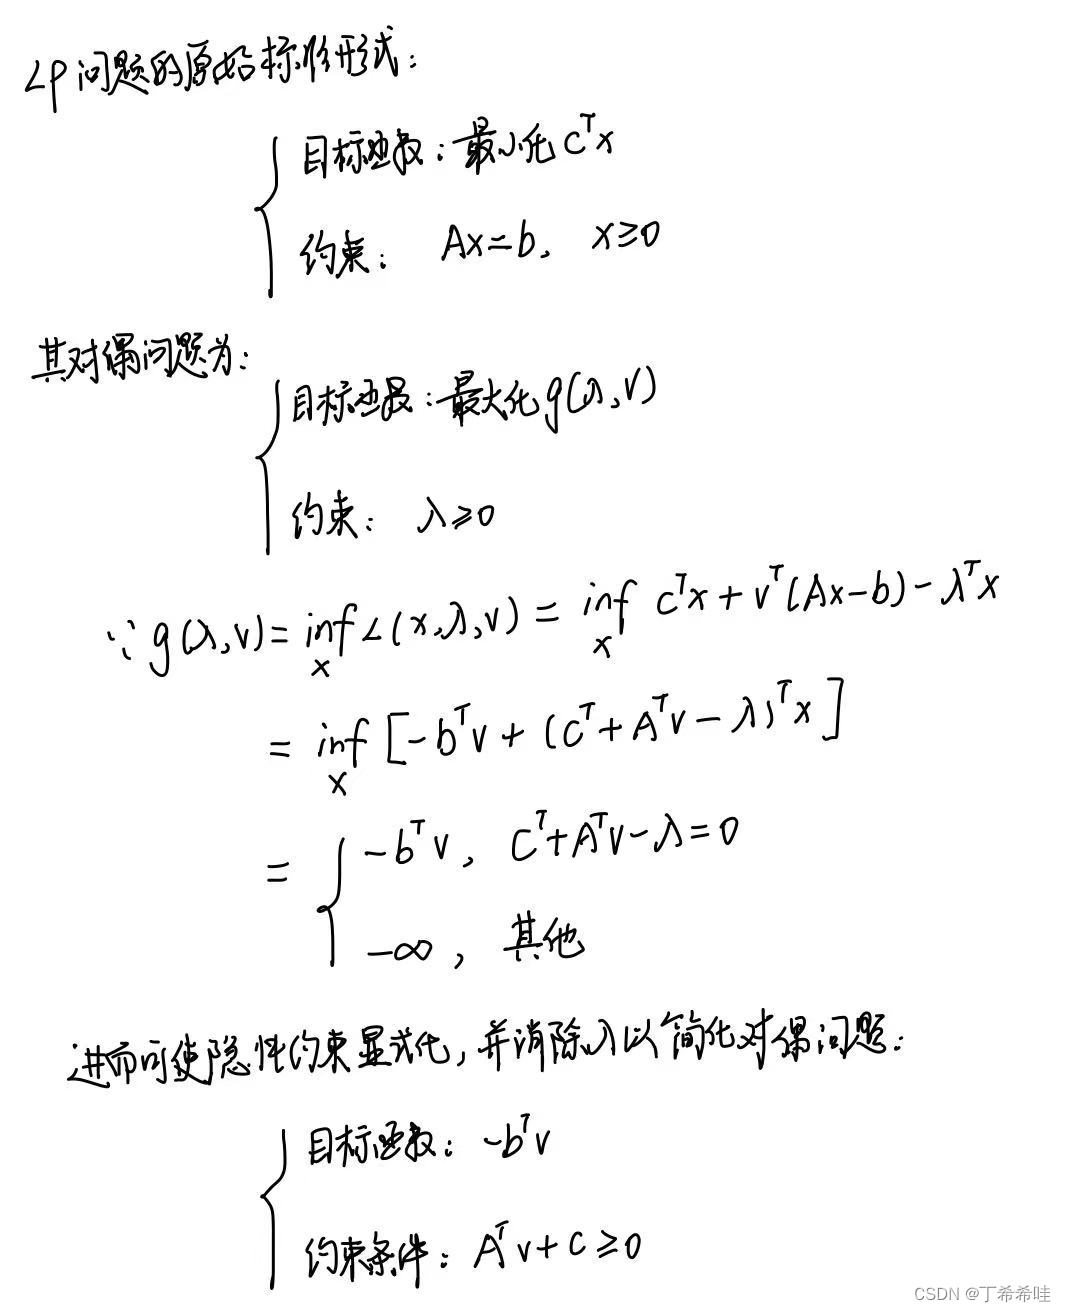 LP问题的原始标准形式:
目标函数:最小化 c^T x
约束: Ax=b, x≥0
其对偶问题为:
目标函数:最大化 g(λ,v)
约束: λ≥0
∵ g(λ,v) = inf_x L(x,λ,v) = inf_x c^T x + v^T(Ax-b) - λ^T x
= inf_x [-b^T v + (c^T + A^T v - λ)^T x]
= { -b^T v, c^T + A^T v - λ = 0
-∞, 其他
进而可使隐性约束显式化,并消除λ以简化对偶问题:
目标函数: -b^T v
约束条件: A^T v + c ≥ 0
CSDN @丁希希哇